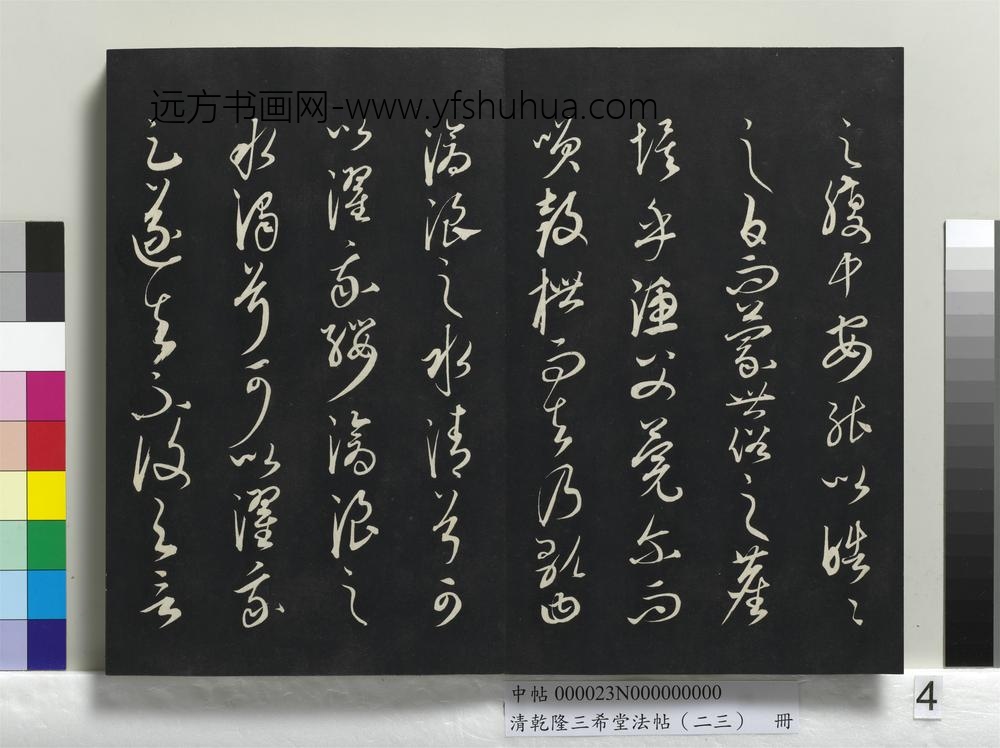 远方书画网-www.yfshuhua.com
之腹中安能以皓〻
之白而蒙世俗之塵
埃乎漁父莞尔而
咲鼓枻而去乃歌曰
滄浪之水清兮可
以濯我纓滄浪之
水濁兮可以濯我
足遂去不復與言
中帖 000023N000000000
清乾隆三希堂法帖(二三) 冊
4